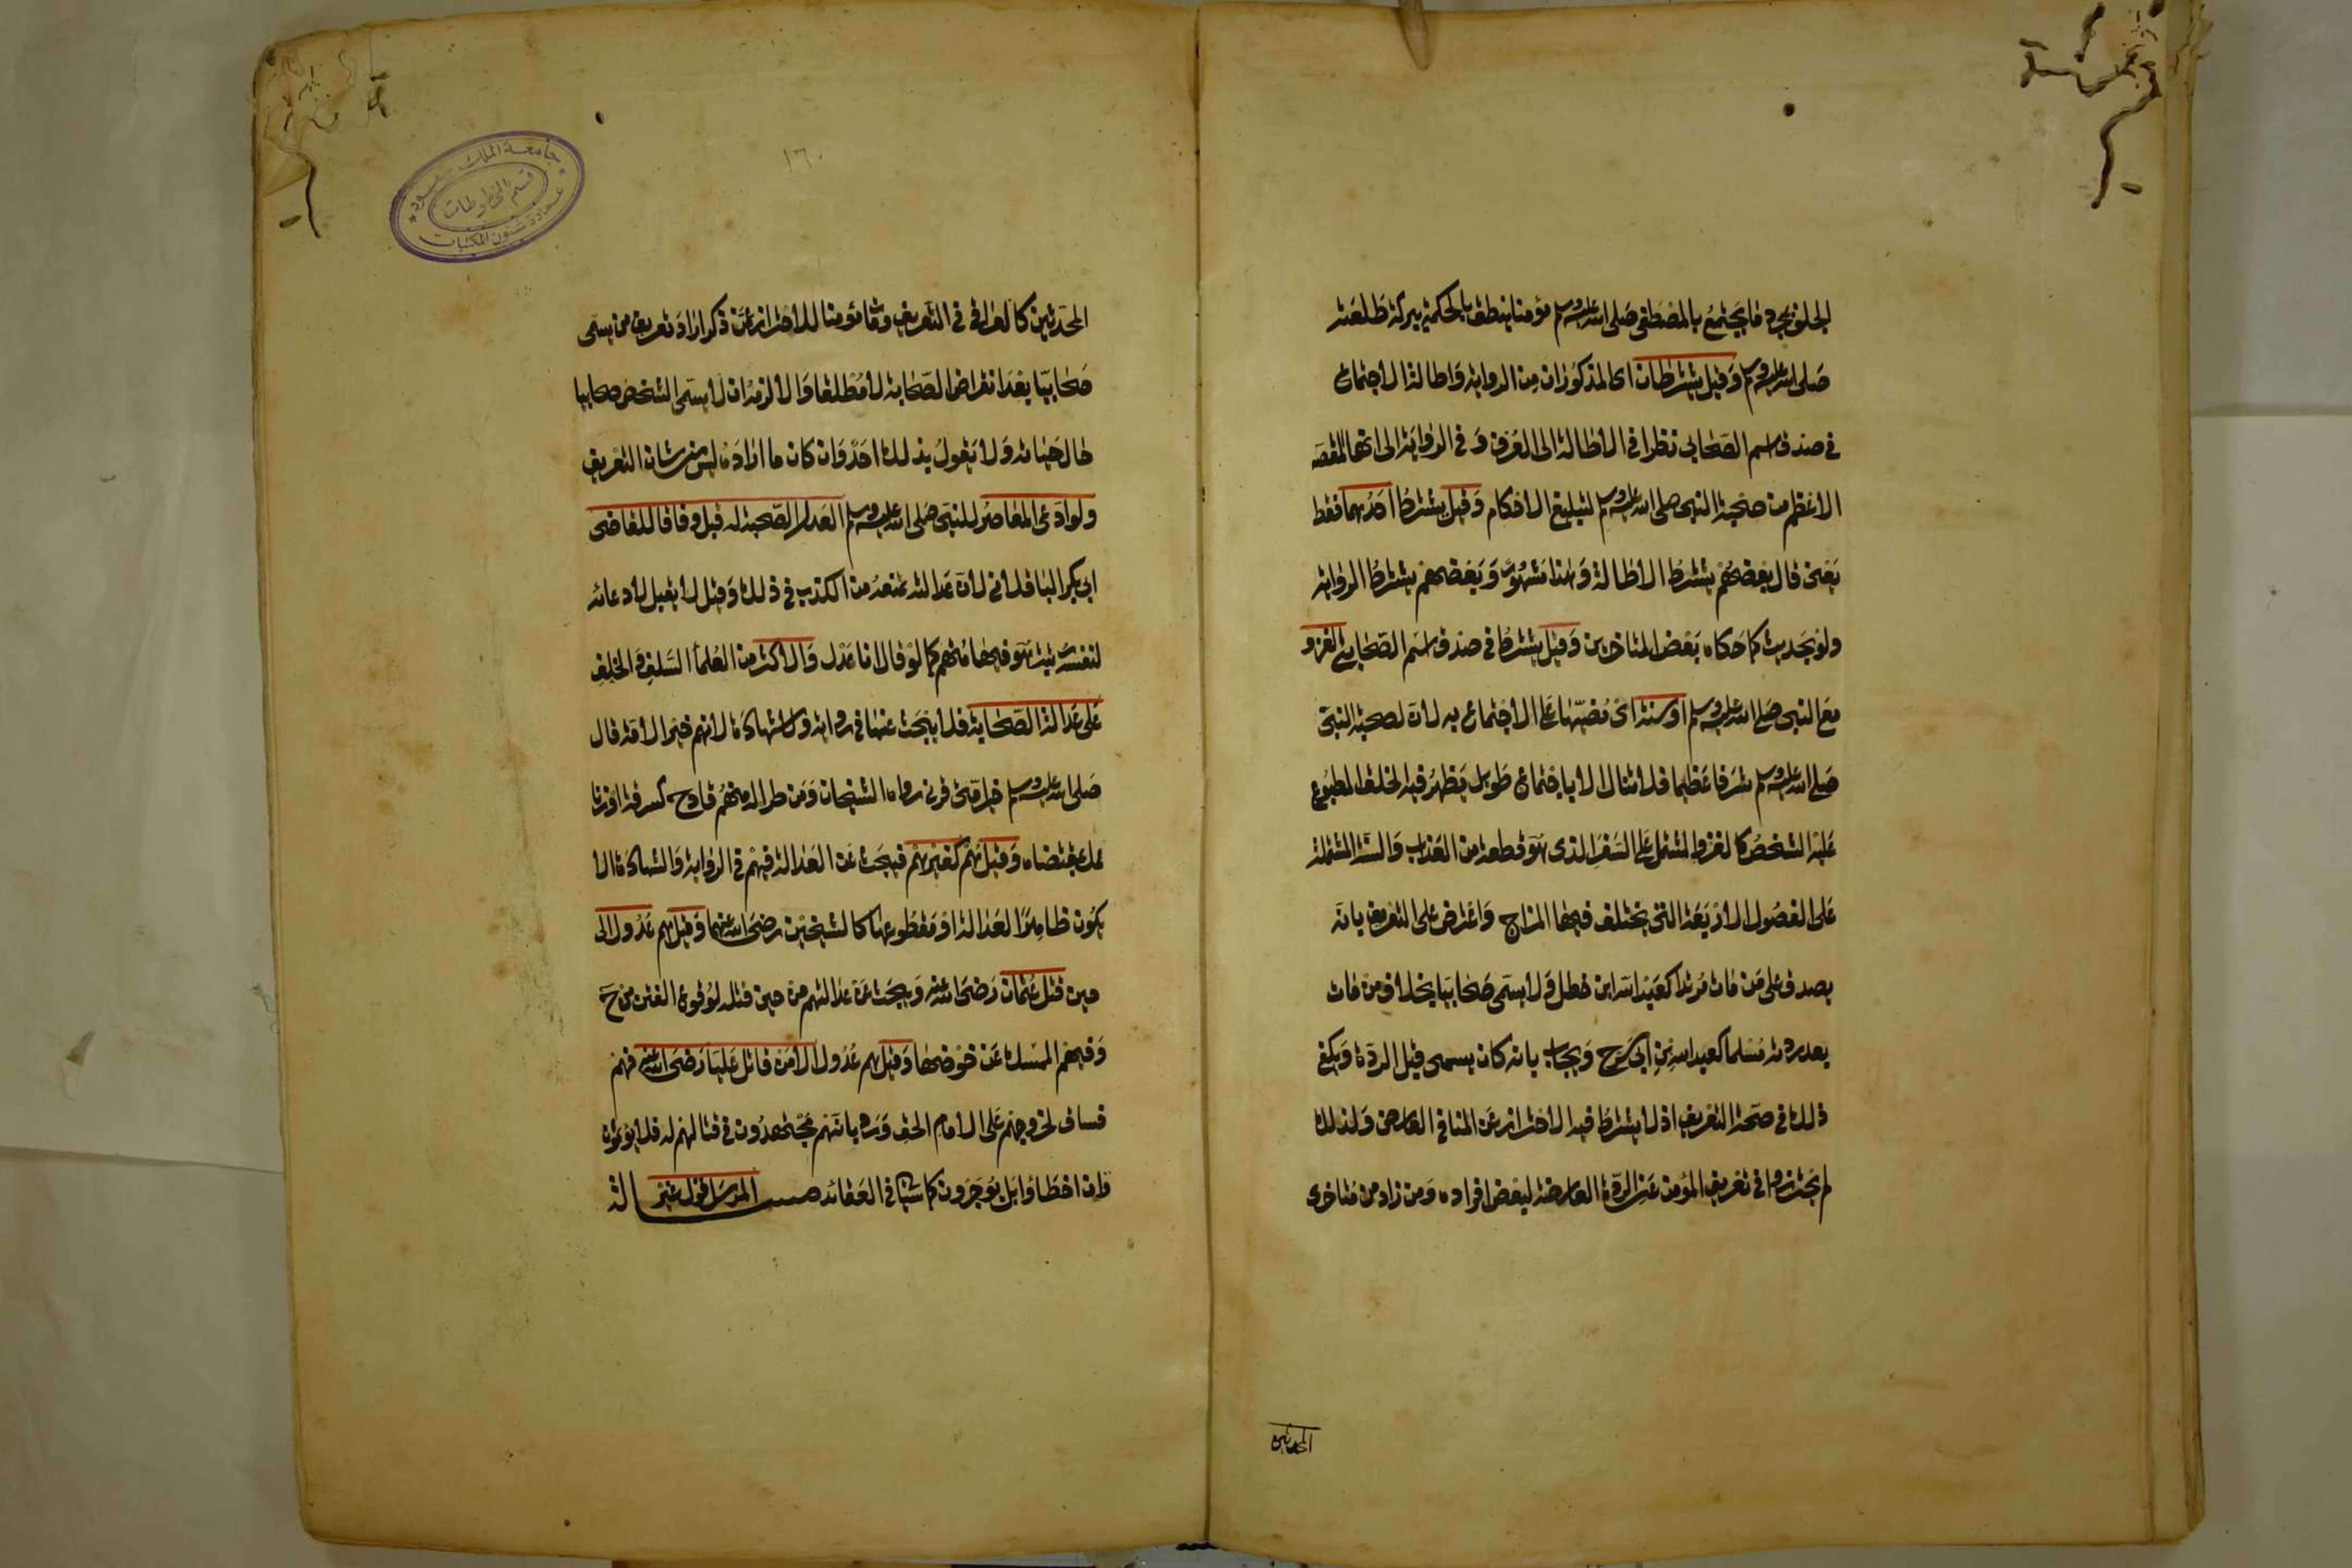 الجلف بمجرد ما يجتمع بالمصطفى صلى الله عليه وسلم مؤمنا ينطق بالحكمة ببركة طلعته
صلى الله عليه وسلم وقيل يشترطان اى المذكوران من الرواية واطالة الاجتماع
في صدق اسم الصحابي نظرا في الاطالة الى العرف وفي الرواية الى انها المقصد
الاعظم من صحبة النبي صلى الله عليه وسلم لتبليغ الاحكام وقيل يشترط احدهما فقط
يعنى قال بعضهم يشترط الاطالة وهذا مشهور وبعضهم يشترط الرواية
ولو بحديث كما حكاه بعض المتاخرين وقيل يشترط في صدق اسم الصحابي الغزو
مع النبي صلى الله عليه وسلم او سنة اى مضيها على الاجتماع به لان لصحبة النبي
صلى الله عليه وسلم شرفا عظيما فلا تنال الا باجتماع طويل يظهر فيه الخلق المطبوع
عليه الشخص كالغزو المشتمل على السفر الذى هو قطعة من العذاب والسنة المشتملة
على الفصول الاربعة التى يختلف فيها المزاج واعترض على التعريف بانه
يصدق على من مات مرتدا كعبد الله ابن خطل ولا يسمى صحابيا بخلاف من مات
بعد ردته مسلما كعبد الله بن ابي سرح ويجاب بانه كان يسمى قبل الردة ويكفى
ذلك في صحة التعريف اذ لا يشترط فيه الاحتراز عن المنافي العارض ولذلك
لم يحترزوا في تعريف المؤمن عن الردة العارضة لبعض افراده ومن زاد من متاخرى
المحدثين
١٦٠
جامعة الملك سعود
قسم المخطوطات
عمادة شئون المكتبات
المحدثين كالعراقي في التعريف ومات مؤمنا للاحتراز عمن ذكر اراد تعريف من يسمى
صحابيا بعد انقراض الصحابة لا مطلقا والا لزمه ان لا يسمى الشخص صحابيا
حال حياته ولا يقول بذلك احد وان كان ما اراده ليس من شان التعريف
ولو ادعى المعاصر للنبي صلى الله عليه وسلم العدل الصحبة له قبل وفاقا للقاضى
ابي بكر الباقلاني لان عدالته تمنعه من الكذب في ذلك وقيل لا يقبل لادعائه
لنفسه رتبة هو فيها متهم كما لو قال انا عدل والاكثر من العلماء السلف والخلف
على عدالة الصحابة فلا يبحث عنها في رواية ولا شهادة لانهم خير الامة قال
صلى الله عليه وسلم خير امتى قرني رواه الشيخان ومن طرا له منهم قادح كسرقة او زنا
عمل بمقتضاه وقيل هم كغيرهم فيبحث عن العدالة فيهم في الرواية والشهادة الا
يكون ظاهر العدالة او مقطوعها كالشيخين رضى الله عنهما وقيل هم عدول الى
حين قتل عثمان رضى الله عنه ويبحث عن عدالتهم من حين قتله لوقوع الفتن من ح
وفيهم الممسك عن خوضها وقيل هم عدول الا من قاتل عليا رضى الله عنه فهم
فساق لخروجهم على الامام الحق ورد بانهم مجتهدون في قتالهم له فلا يؤثموا
وان اخطاوا بل يؤجرون كما سياتي في العقائد مسئلة المرسل قول غير